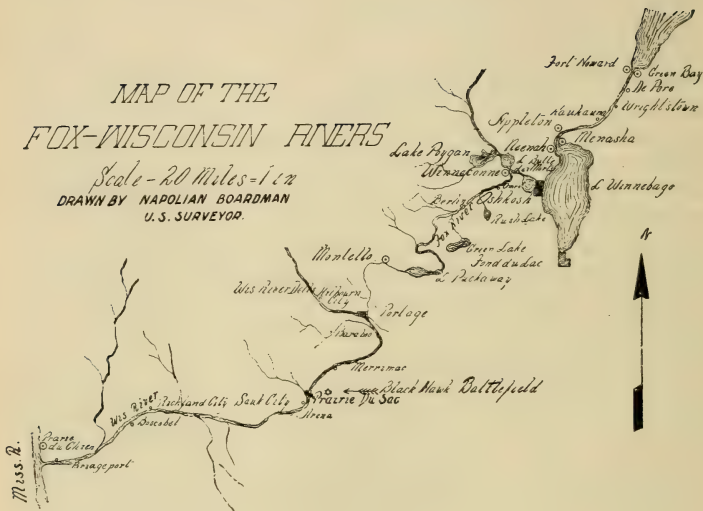 MAP OF THE
FOX-WISCONSIN RIVERS
Scale - 20 Miles = 1 in
DRAWN BY NAPOLIAN BOARDMAN
U.S. SURVEYOR.
Fort Howard
Green Bay
De Pere
Wrightstown
Kaukauna
Appleton
Menasha
Neenah
Lake Poygan
L Butte
Winneconne
L Winnebago
Berlin
Oshkosh
Fox River
Rush Lake
Green Lake
Fond du Lac
L Puckaway
Montello
N
Wis River Dells
Kilbourn
City
Portage
Baraboo
Merrimac
Black Hawk Battlefield
Prairie Du Sac
Sauk City
Arena
Wis River
Richland City
Boscobel
Prarie
du Chien
Bridgeport
Miss. R.